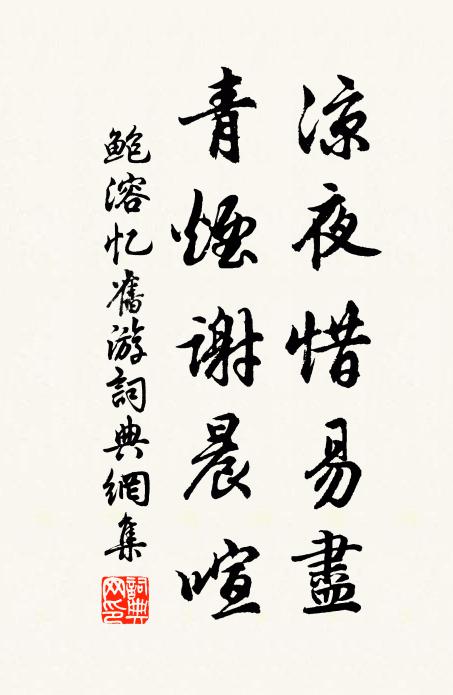 涼夜惜易盡
青煙謝晨喧
鲍溶忆舊游詞典網集
詞典網印